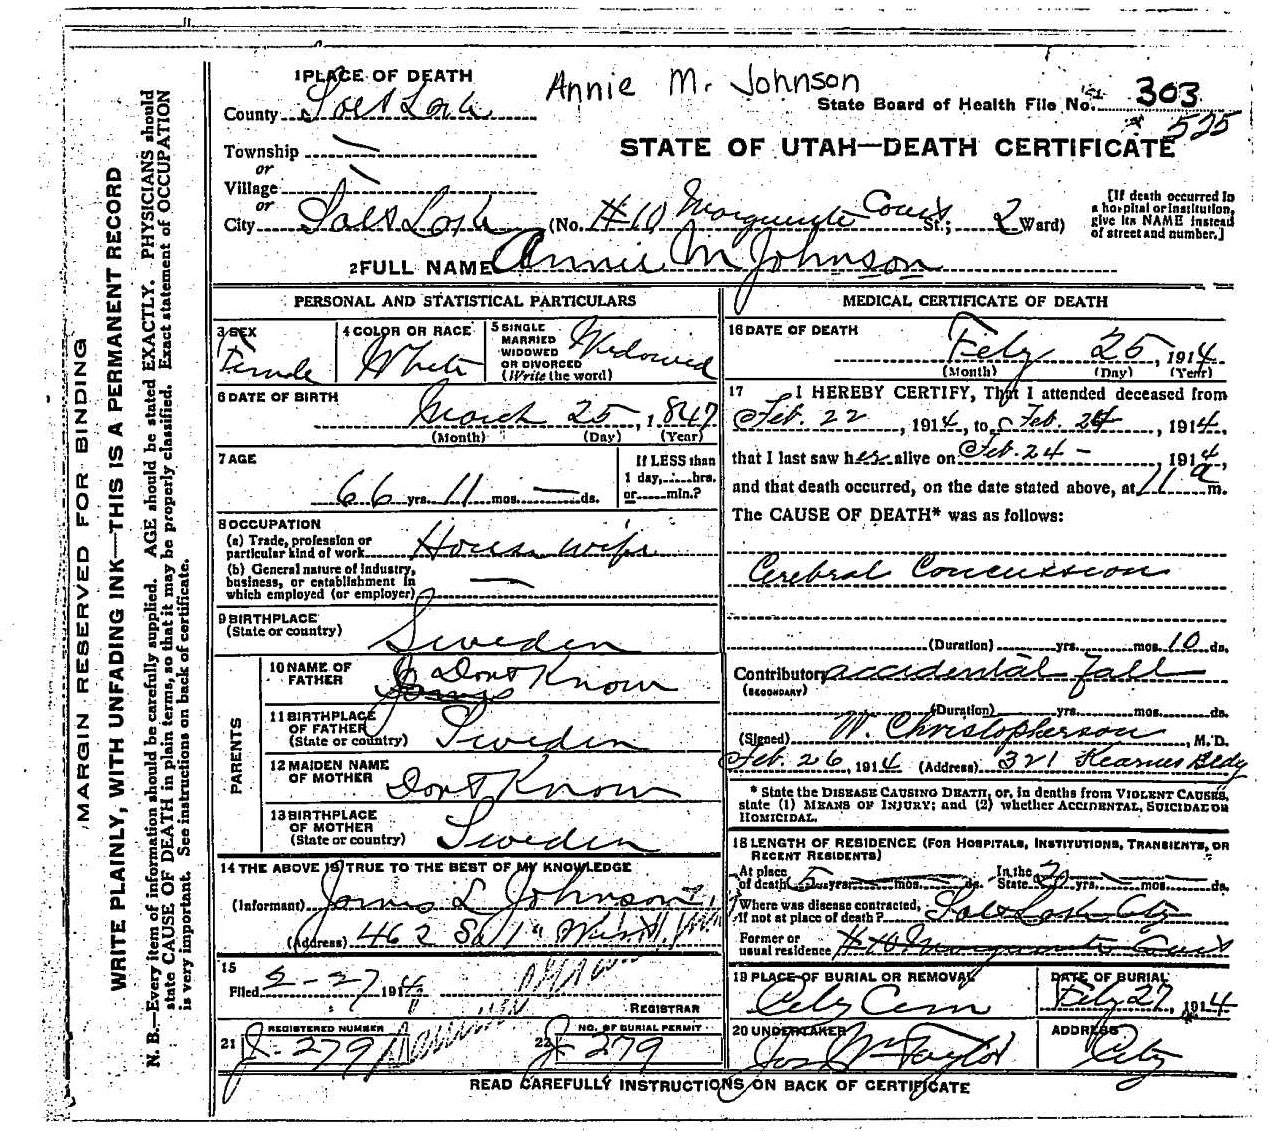 1 PLACE OF DEATH
Annie M. Johnson
County Salt Lake
State Board of Health File No. 303
525
Township —
or
Village —
or
STATE OF UTAH—DEATH CERTIFICATE
City Salt Lake (No. #10 Marguerite Court St.; 2 Ward)
[If death occurred in
a hospital or institution,
give its NAME instead
of street and number.]
2 FULL NAME Annie M Johnson
PERSONAL AND STATISTICAL PARTICULARS
3 SEX
Female
4 COLOR OR RACE
White
5 SINGLE
MARRIED
WIDOWED
OR DIVORCED
(Write the word)
Widowed
6 DATE OF BIRTH
March 25, 1847
(Month) (Day) (Year)
7 AGE
66 yrs. 11 mos. — ds.
If LESS than
1 day, hrs.
or min.?
8 OCCUPATION
(a) Trade, profession or
particular kind of work House wife
(b) General nature of industry,
business, or establishment in
which employed (or employer) —
9 BIRTHPLACE
(State or country)
Sweden
PARENTS
10 NAME OF
FATHER
Dont Know
11 BIRTHPLACE
OF FATHER
(State or country) Sweden
12 MAIDEN NAME
OF MOTHER
Dont Know
13 BIRTHPLACE
OF MOTHER
(State or country) Sweden
14 THE ABOVE IS TRUE TO THE BEST OF MY KNOWLEDGE
(Informant) James L Johnson
(Address) 462 So 1st West
15
Filed 2-27 1914
REGISTRAR
21 REGISTERED NUMBER
J-279
22 NO. OF BURIAL PERMIT
J-279
MEDICAL CERTIFICATE OF DEATH
16 DATE OF DEATH
Feby 25, 1914
(Month) (Day) (Year)
17 I HEREBY CERTIFY, That I attended deceased from
Feb. 22, 1914, to Feb. 24, 1914,
that I last saw her alive on Feb. 24 - 1914,
and that death occurred, on the date stated above, at 11 a m.
The CAUSE OF DEATH* was as follows:
Cerebral Concussion
(Duration) yrs. mos. 10 ds.
Contributory accidental fall
(SECONDARY)
(Duration) yrs. mos. ds.
(Signed) W. Christopherson, M.D.
Feb. 26, 1914 (Address) 321 Kearns Bldg
* State the DISEASE CAUSING DEATH, or, in deaths from VIOLENT CAUSES,
state (1) MEANS OF INJURY; and (2) whether ACCIDENTAL, SUICIDAL OR
HOMICIDAL.
18 LENGTH OF RESIDENCE (FOR HOSPITALS, INSTITUTIONS, TRANSIENTS, OR
RECENT RESIDENTS)
At place
of death 5 yrs. mos. ds. In the
State yrs. mos. ds.
Where was disease contracted,
if not at place of death? Salt Lake City
Former or
usual residence #10 Marguerite Court
19 PLACE OF BURIAL OR REMOVAL
City Cem
DATE OF BURIAL
Feby 27, 1914
20 UNDERTAKER
Jos Wm Taylor
ADDRESS
City
READ CAREFULLY INSTRUCTIONS ON BACK OF CERTIFICATE
MARGIN RESERVED FOR BINDING
WRITE PLAINLY, WITH UNFADING INK—THIS IS A PERMANENT RECORD
N. B.—Every item of information should be carefully supplied. AGE should be stated EXACTLY. PHYSICIANS should
state CAUSE OF DEATH in plain terms, so that it may be properly classified. Exact statement of OCCUPATION
is very important. See instructions on back of certificate.